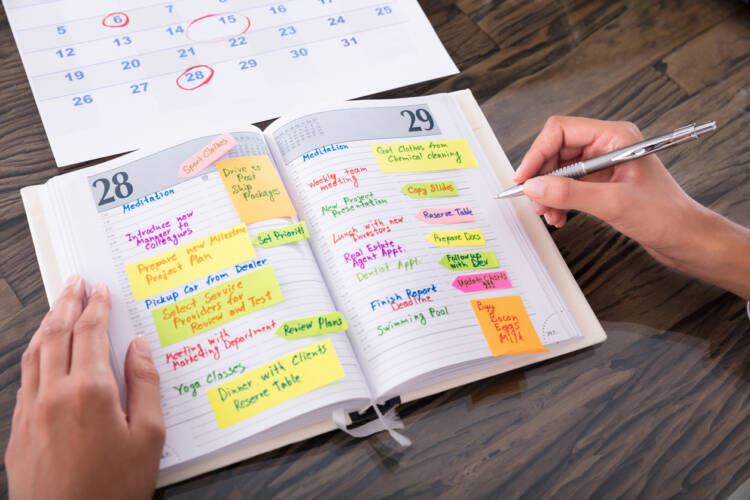 5 6 7 8 9 10 11
12 13 14 15 16 17 18
19 20 21 22 23 24 25
26 27 28 29 30 31
28
Sport Clothes
Meditation
Drive to
Post
Ship
Packages
Introduce new
Manager to
colleagues
Set Prioriti
Prepare new Milestone
Project Plan
Pickup Car from Dealer
Select Service
Providers for
Review and Test
Review Plans
Meeting with
Marketing Department
Yoga Classes
Dinner with Clients
Reserve Table
29
Meditation
Got Clothes from
Chemical cleaning
Weekly team
meeting
Copy Slides
New Project
Presentation
Reserve Table
Lunch with new
Investors
Prepare Docs
Real Estate
Agent App.
Follow up
with Dev
Dentist Appt.
Update Charts
!!!
Finish Report
Deadline
Buy
Bacon
Eggs
Milk
Swimming Pool